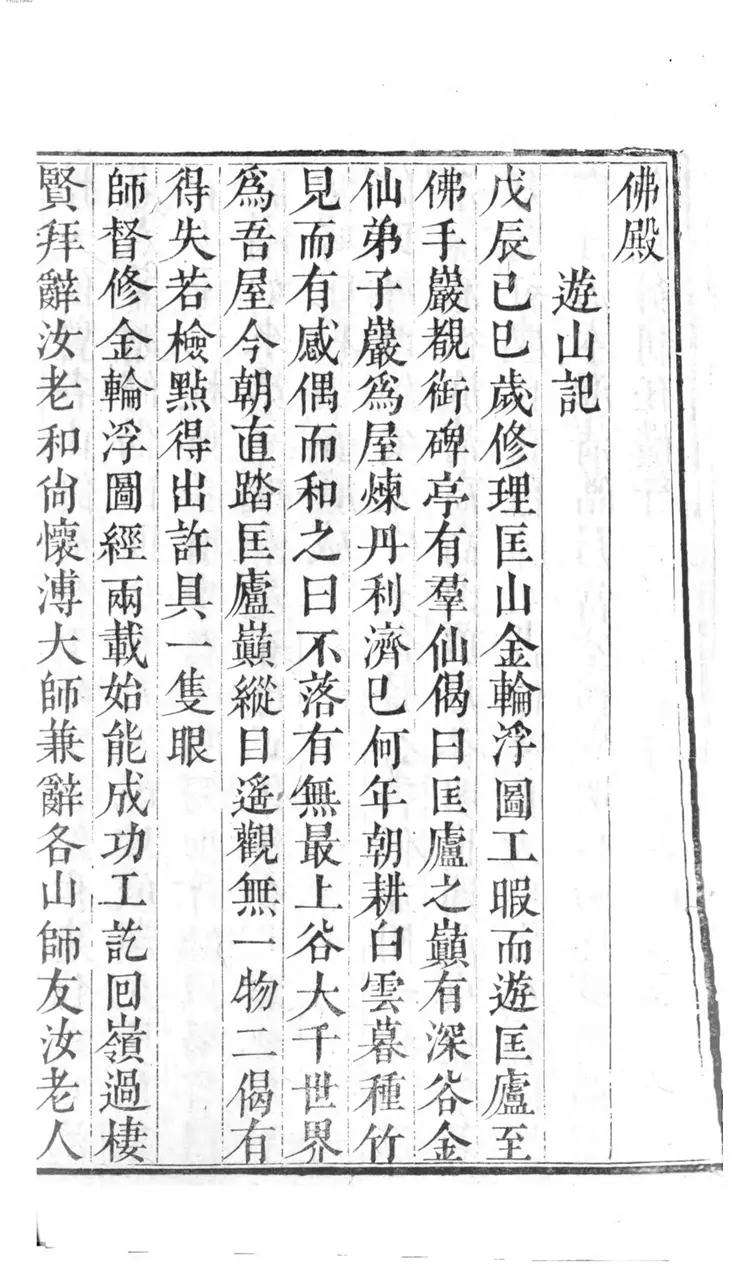 佛殿
遊山記
戊辰己巳歲修理匡山金輪浮圖工暇而遊匡廬至
佛手巖覩街碑亭有羣仙偈曰匡廬之巔有深谷金
仙弟子巖爲屋煉丹利濟已何年朝耕白雲暮種竹
見而有感偶而和之曰不落有無最上谷大千世界
爲吾屋今朝直踏匡廬巔縱目遥觀無一物二偈有
得失若檢點得出許具一隻眼
師督修金輪浮圖經兩載始能成功工訖回嶺過棲
賢拜辭汝老和尚懷溥大師兼辭各山師友汝老人